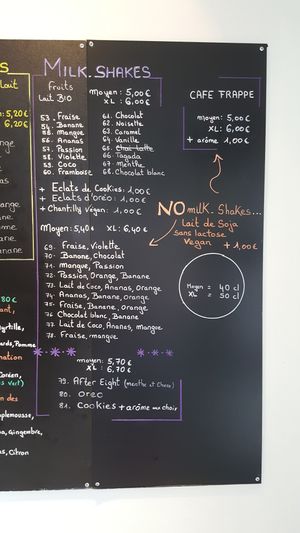 MILK. SHAKES
Fruits
Lait BIO
Moyen: 5,00€
XL: 6,00€
53. Fraise
54. Banane
55. mangue
56. Ananas
57. Passion
58. Violette
59. Coco
60. Framboise
61. Chocolat
62. Noisette
63. Caramel
64. Vanille
65. Chai latte
66. Tagada
67. Menthe
68. Chocolat blanc
+ Eclats de Cookies: 1,00€
+ Eclats d'oreo: 1,00€
+ Chantilly végan: 1,00€
Moyen: 5,40€ XL: 6,40€
69. Fraise, Violette
70. Banane, Chocolat
71. mangue, Passion
72. Passion, Orange, Banane
73. Lait de Coco, Ananas, Orange
74. Ananas, Banane, Orange
75. Fraise, Banane, Orange
76. Chocolat blanc, Banane
77. Lait de Coco, Ananas, mangue
78. Fraise, mangue
moyen: 5,70€
XL: 6,70€
79. After Eight (menthe et Choco)
80. oreo
81. Cookies + arôme au choix
CAFE FRAPPE
moyen: 5,00€
XL: 6,00€
+ arôme 1,00€
NO milk. Shakes...
Lait de Soja
sans lactose
Vegan + 1,00€
Moyen = 40 cl
XL = 50 cl
S
Lait
5,20€
6,20€
80€
ation
, Citron